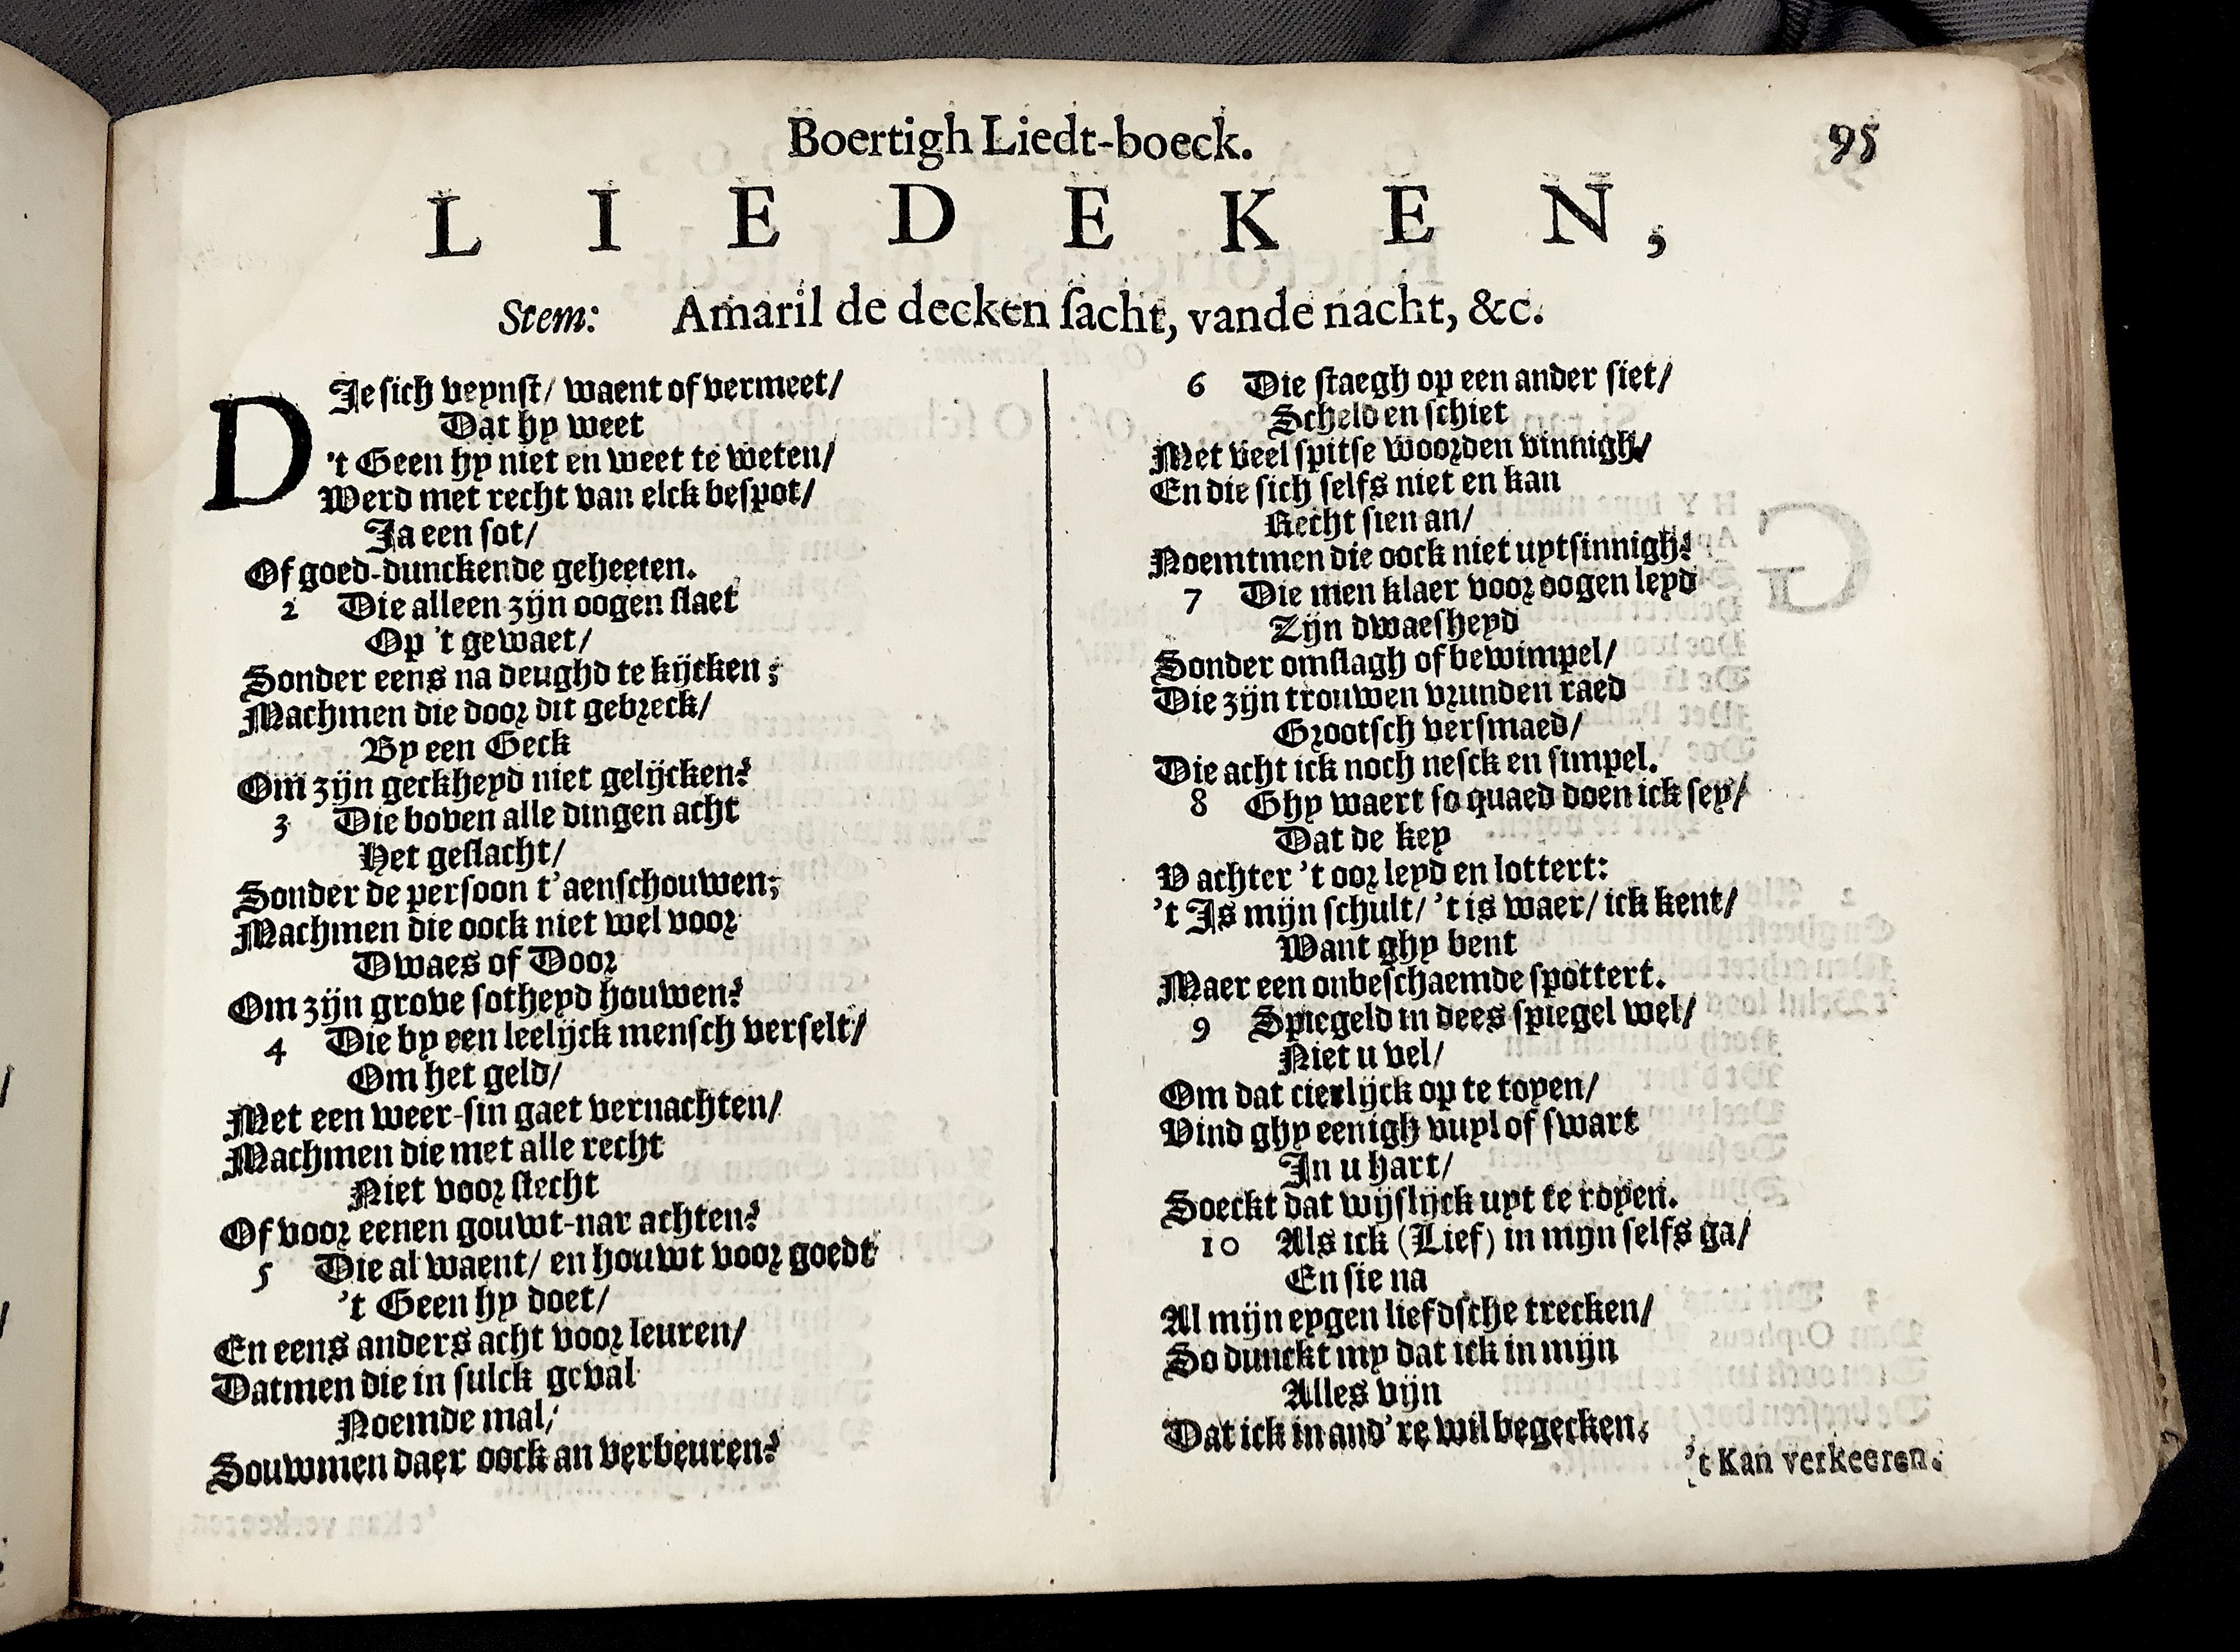 Boertigh Liedt-boeck. 95
LIEDEKEN,
Stem: Amaril de decken ſacht, vande nacht, &c.
DJe ſich veynſt/ waent of vermeet/
Dat hy weet
't Geen hy niet en weet te weten/
Werd met recht van elck beſpot/
Ja een ſot/
Of goed-dunckende geheeten.
2 Die alleen zijn oogen ſlaet
Op 't gewaet/
Sonder eens na deughd te kijcken;
Machmen die door dit gebreck/
By een Geck
Om zijn geckheyd niet gelijcken?
3 Die boven alle dingen acht
Het geſlacht/
Sonder de perſoon t'aenſchouwen;
Machmen die oock niet wel voor
Dwaes of Door
Om zijn grove ſotheyd houwen?
4 Die by een leelijck menſch verſelt/
Om het geld/
Met een weer-ſin gaet vernachten/
Machmen die met alle recht
Niet voor ſlecht
Of voor eenen gouwt-nar achten?
5 Die al waent/ en houwt voor goedt
't Geen hy doet/
En eens anders acht voor leuren/
Datmen die in ſulck geval
Noemde mal/
Souwmen daer oock an verbeuren?
6 Die ſtaegh op een ander ſiet/
Scheld en ſchiet
Met veel ſpitſe woorden vinnigh/
En die ſich ſelfs niet en kan
Recht ſien an/
Noemtmen die oock niet uytſinnigh?
7 Die men klaer voor oogen leyd
Zijn dwaeſheyd
Sonder omſlagh of bewimpel/
Die zijn trouwen vrunden raed
Grootſch verſmaed/
Die acht ick noch neſck en ſimpel.
8 Ghy waert ſo quaed doen ick ſey/
Dat de key
U achter 't oor leyd en lottert:
't Is mijn ſchult/ 't is waer/ ick kent/
Want ghy bent
Maer een onbeſchaemde ſpottert.
9 Spiegeld in dees ſpiegel wel/
Niet u vel/
Om dat cierlijck op te toyen/
Vind ghy eenigh vuyl of ſwart
In u hart/
Soeckt dat wijſlijck uyt te royen.
10 Als ick (Lief) in mijn ſelfs ga/
En ſie na
Al mijn eygen liefdſche trecken/
So dunckt my dat ick in mijn
Alles vijn
Dat ick in and're wil begecken.
't Kan verkeeren.